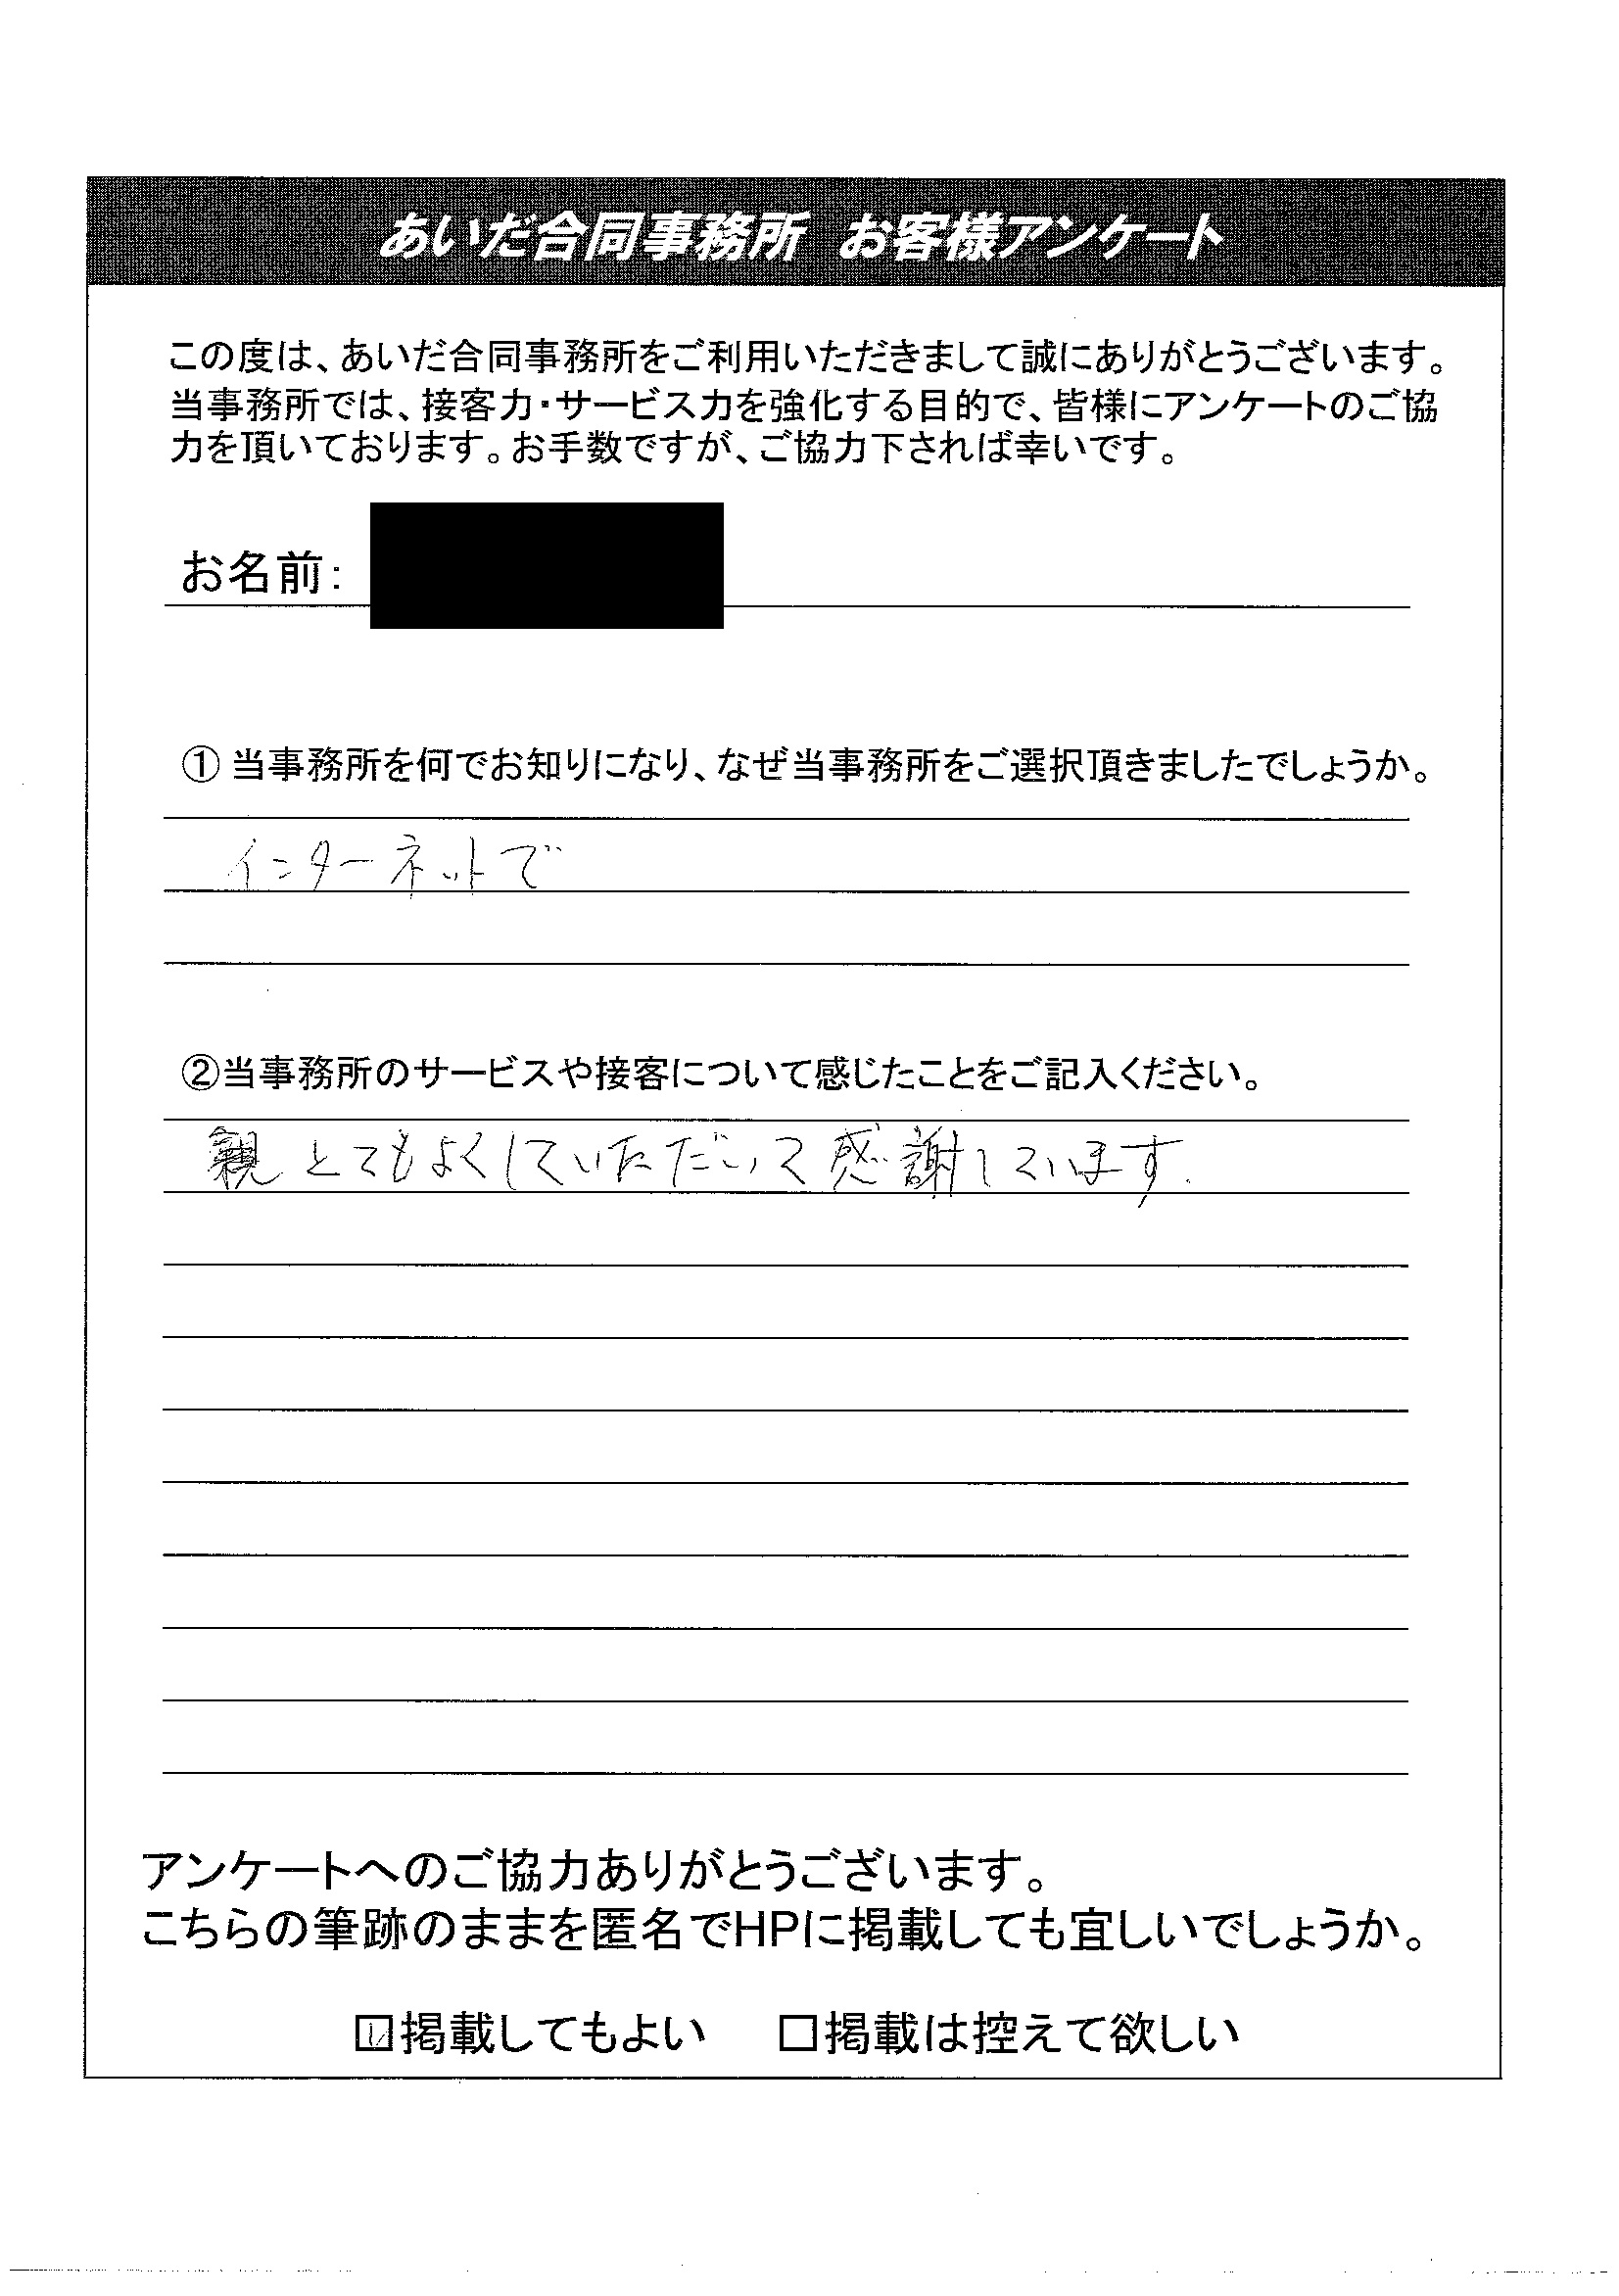 あいだ合同事務所 お客様アンケート
この度は、あいだ合同事務所をご利用いただきまして誠にありがとうございます。
当事務所では、接客力・サービス力を強化する目的で、皆様にアンケートのご協
力を頂いております。お手数ですが、ご協力下されば幸いです。
お名前:
① 当事務所を何でお知りになり、なぜ当事務所をご選択頂きましたでしょうか。
インターネットで
②当事務所のサービスや接客について感じたことをご記入ください。
親とてもよくしていただいて感謝しています.
アンケートへのご協力ありがとうございます。
こちらの筆跡のままを匿名でHPに掲載しても宜しいでしょうか。
☑掲載してもよい □掲載は控えて欲しい